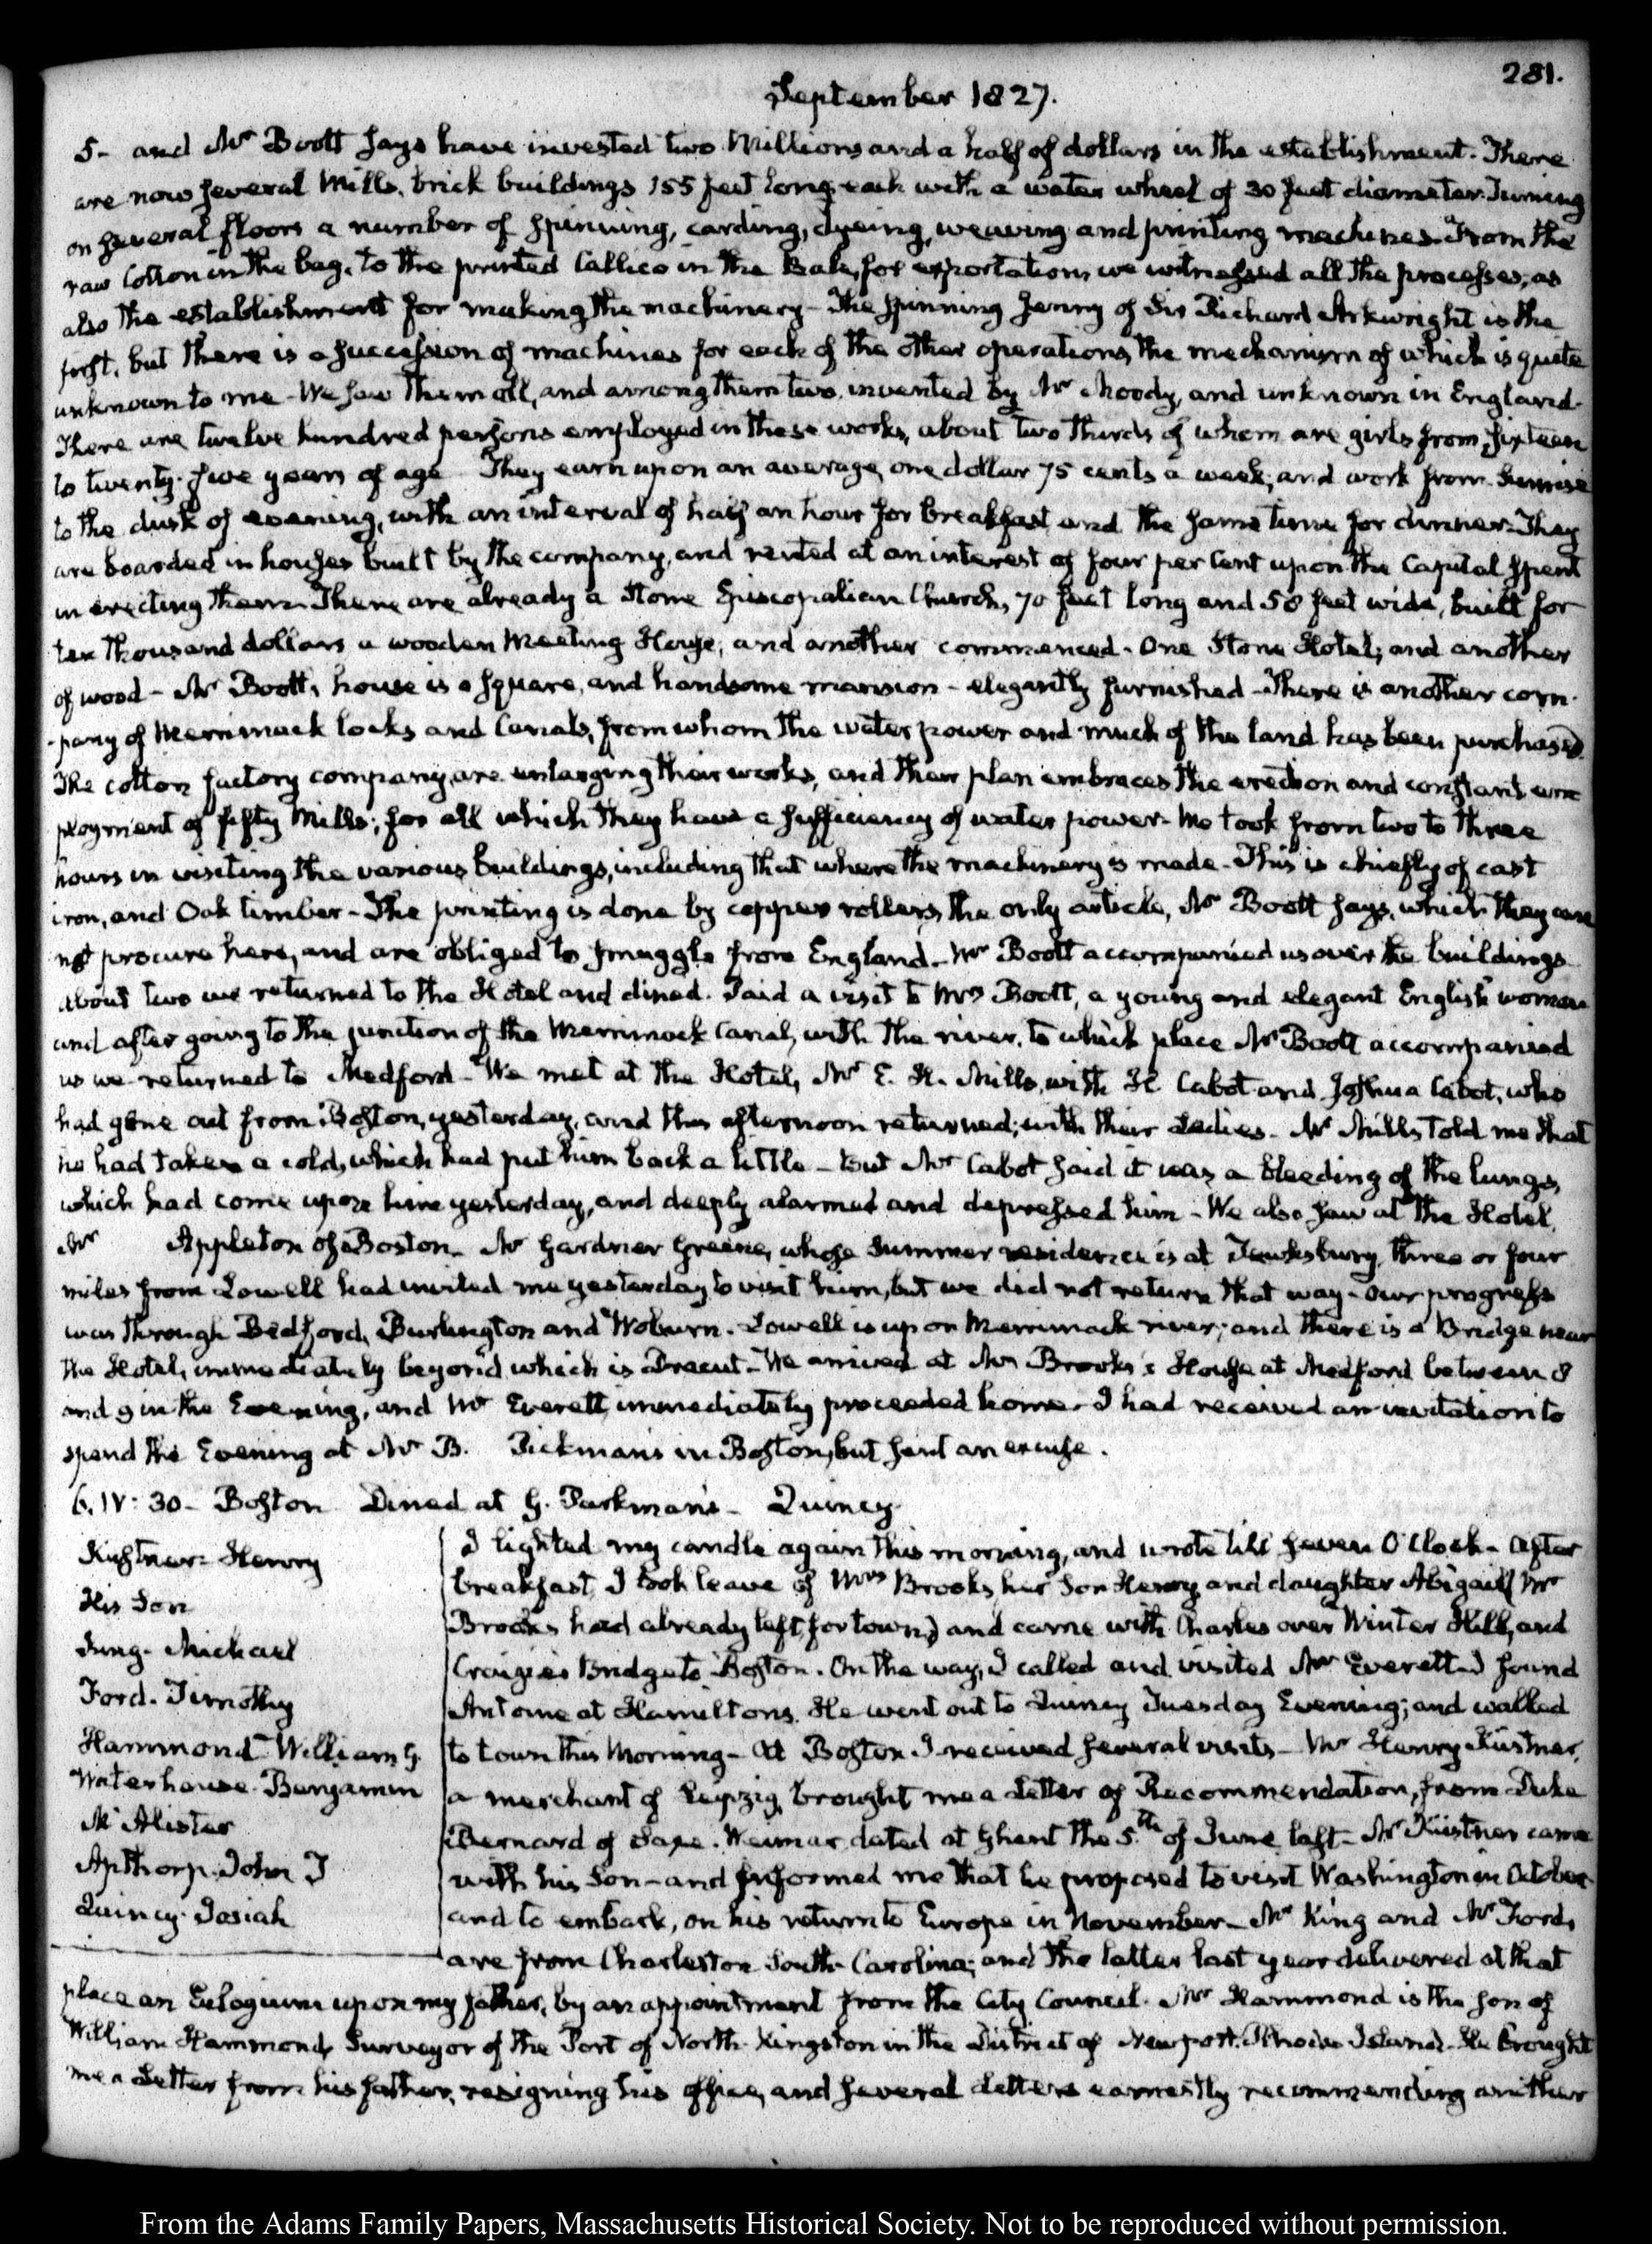 281.
September 1827.
5- and Mr Boott says have invested two Millions and a half of dollars in the establishment. There
are now several Mills, brick buildings 155 feet long, each with a water wheel of 30 feet diameter. Turning
on several floors a number of spinning, carding, dyeing, weaving and printing machines. From the
raw Cotton in the bag, to the printed Callico in the Bale, for exportation, we witnessed all the processes; as
also the establishment for making the machinery- The spinning Jenny of Sir Richard Arkwright is the
first, but there is a succession of machines for each of the other operations, the mechanism of which is quite
unknown to me- We saw them all, and among them two, invented by Mr Moody, and unknown in England-
There are twelve hundred persons employed in these works, about two thirds of whom are girls from sixteen
to twenty-five years of age They earn upon an average, one dollar 75 cents a week; and work from Sunrise
to the dusk of evening, with an interval of half an hour for breakfast and the same time for dinner- They
are boarded in houses built by the company, and rented at an interest of four per Cent upon the Capital spent
in erecting them- There are already a Stone Episcopalian Church, 70 feet long and 50 feet wide, built for
ten thousand dollars a wooden Meeting House; and another commenced- One Stone Hotel; and another
of wood- Mr Boott's house is a square, and handsome mansion- elegantly furnished- There is another com-
-pany of Merrimack locks and Canals, from whom the water power and much of the land has been purchased.
The cotton factory company, are enlarging their works, and their plan embraces the erection and constant em
ployment of fifty Mills; for all which they have a sufficiency of water power- We took from two to three
hours in visiting the various buildings, including that where the machinery is made- This is chiefly of cast
iron, and Oak timber- The printing is done by copper rollers, the only article, Mr Boott says, which they can
not procure here, and are obliged to smuggle from England- Mr Boott accompanied us over the buildings
About two we returned to the Hotel and dined. Paid a visit to Mrs Boott, a young and elegant English woman
and after going to the junction of the Merrimack Canal, with the river, to which place Mr Boott accompanied
us we returned to Medford- We met at the Hotel, Mr E. H. Mills, with H Cabot and Joshua Cabot, who
had gone out from Boston, yesterday, and this afternoon returned; with their Ladies- Mr Mills told me that
he had taken a cold, which had put him back a little- but Mr Cabot said it was a bleeding of the lungs,
which had come upon him yesterday, and deeply alarmed and depressed him- We also saw at the Hotel,
Mr Appleton of Boston- Mr Gardner Greene, whose Summer residence is at Tewksbury, three or four
miles from Lowell had invited me yesterday to visit him, but we did not return that way- Our progress
was through Bedford, Burlington and Woburn. Lowell is upon Merrimack river; and there is a Bridge near
the Hotel, immediately beyond which is Dracut- We arrived at Mr Brooks's House at Medford between 8
and 9 in the Evening, and Mr Everett immediately proceeded home- I had received an invitation to
spend the Evening at Mr B. Pickman's in Boston, but sent an excuse.
6. IV: 30- Boston Dined at G. Parkman's- Quincy
Küstner- Henry
His Son
King- Michael
Ford- Timothy
Hammond William G.
Waterhouse- Benjamin
McAlister
Apthorp. John T
Quincy- Josiah
I lighted my candle again this morning, and wrote till seven O'Clock- After
breakfast, I took leave of Mrs Brooks, her Son Henry, and daughter Abigail (Mr
Brooks had already left, for town) and came with Charles over Winter Hill, and
Craigie's Bridge to Boston. On the way, I called and visited Mr Everett- I found
Antoine at Hamilton's. He went out to Quincy Tuesday Evening; and walked
to town this Morning- At Boston I received several visits- Mr Henry Küstner,
a merchant of Leipzig, brought me a Letter of Recommendation, from Duke
Bernard of Saxe-Weimar dated at Ghent the 5.th of June last- Mr Küstner came
with his Son- and informed me that he proposed to visit Washington in October
and to embark, on his return to Europe in November- Mr King and Mr Ford,
are from Charleston South-Carolina; and the latter last year delivered at that
place an Eulogium upon my father, by an appointment from the City Council. Mr Hammond is the son of
William Hammond, Surveyor of the Port of North-Kingston in the District of Newport, Rhode Island- He brought
me a Letter from his father, resigning his office, and several Letters earnestly recommending another
From the Adams Family Papers, Massachusetts Historical Society. Not to be reproduced without permission.